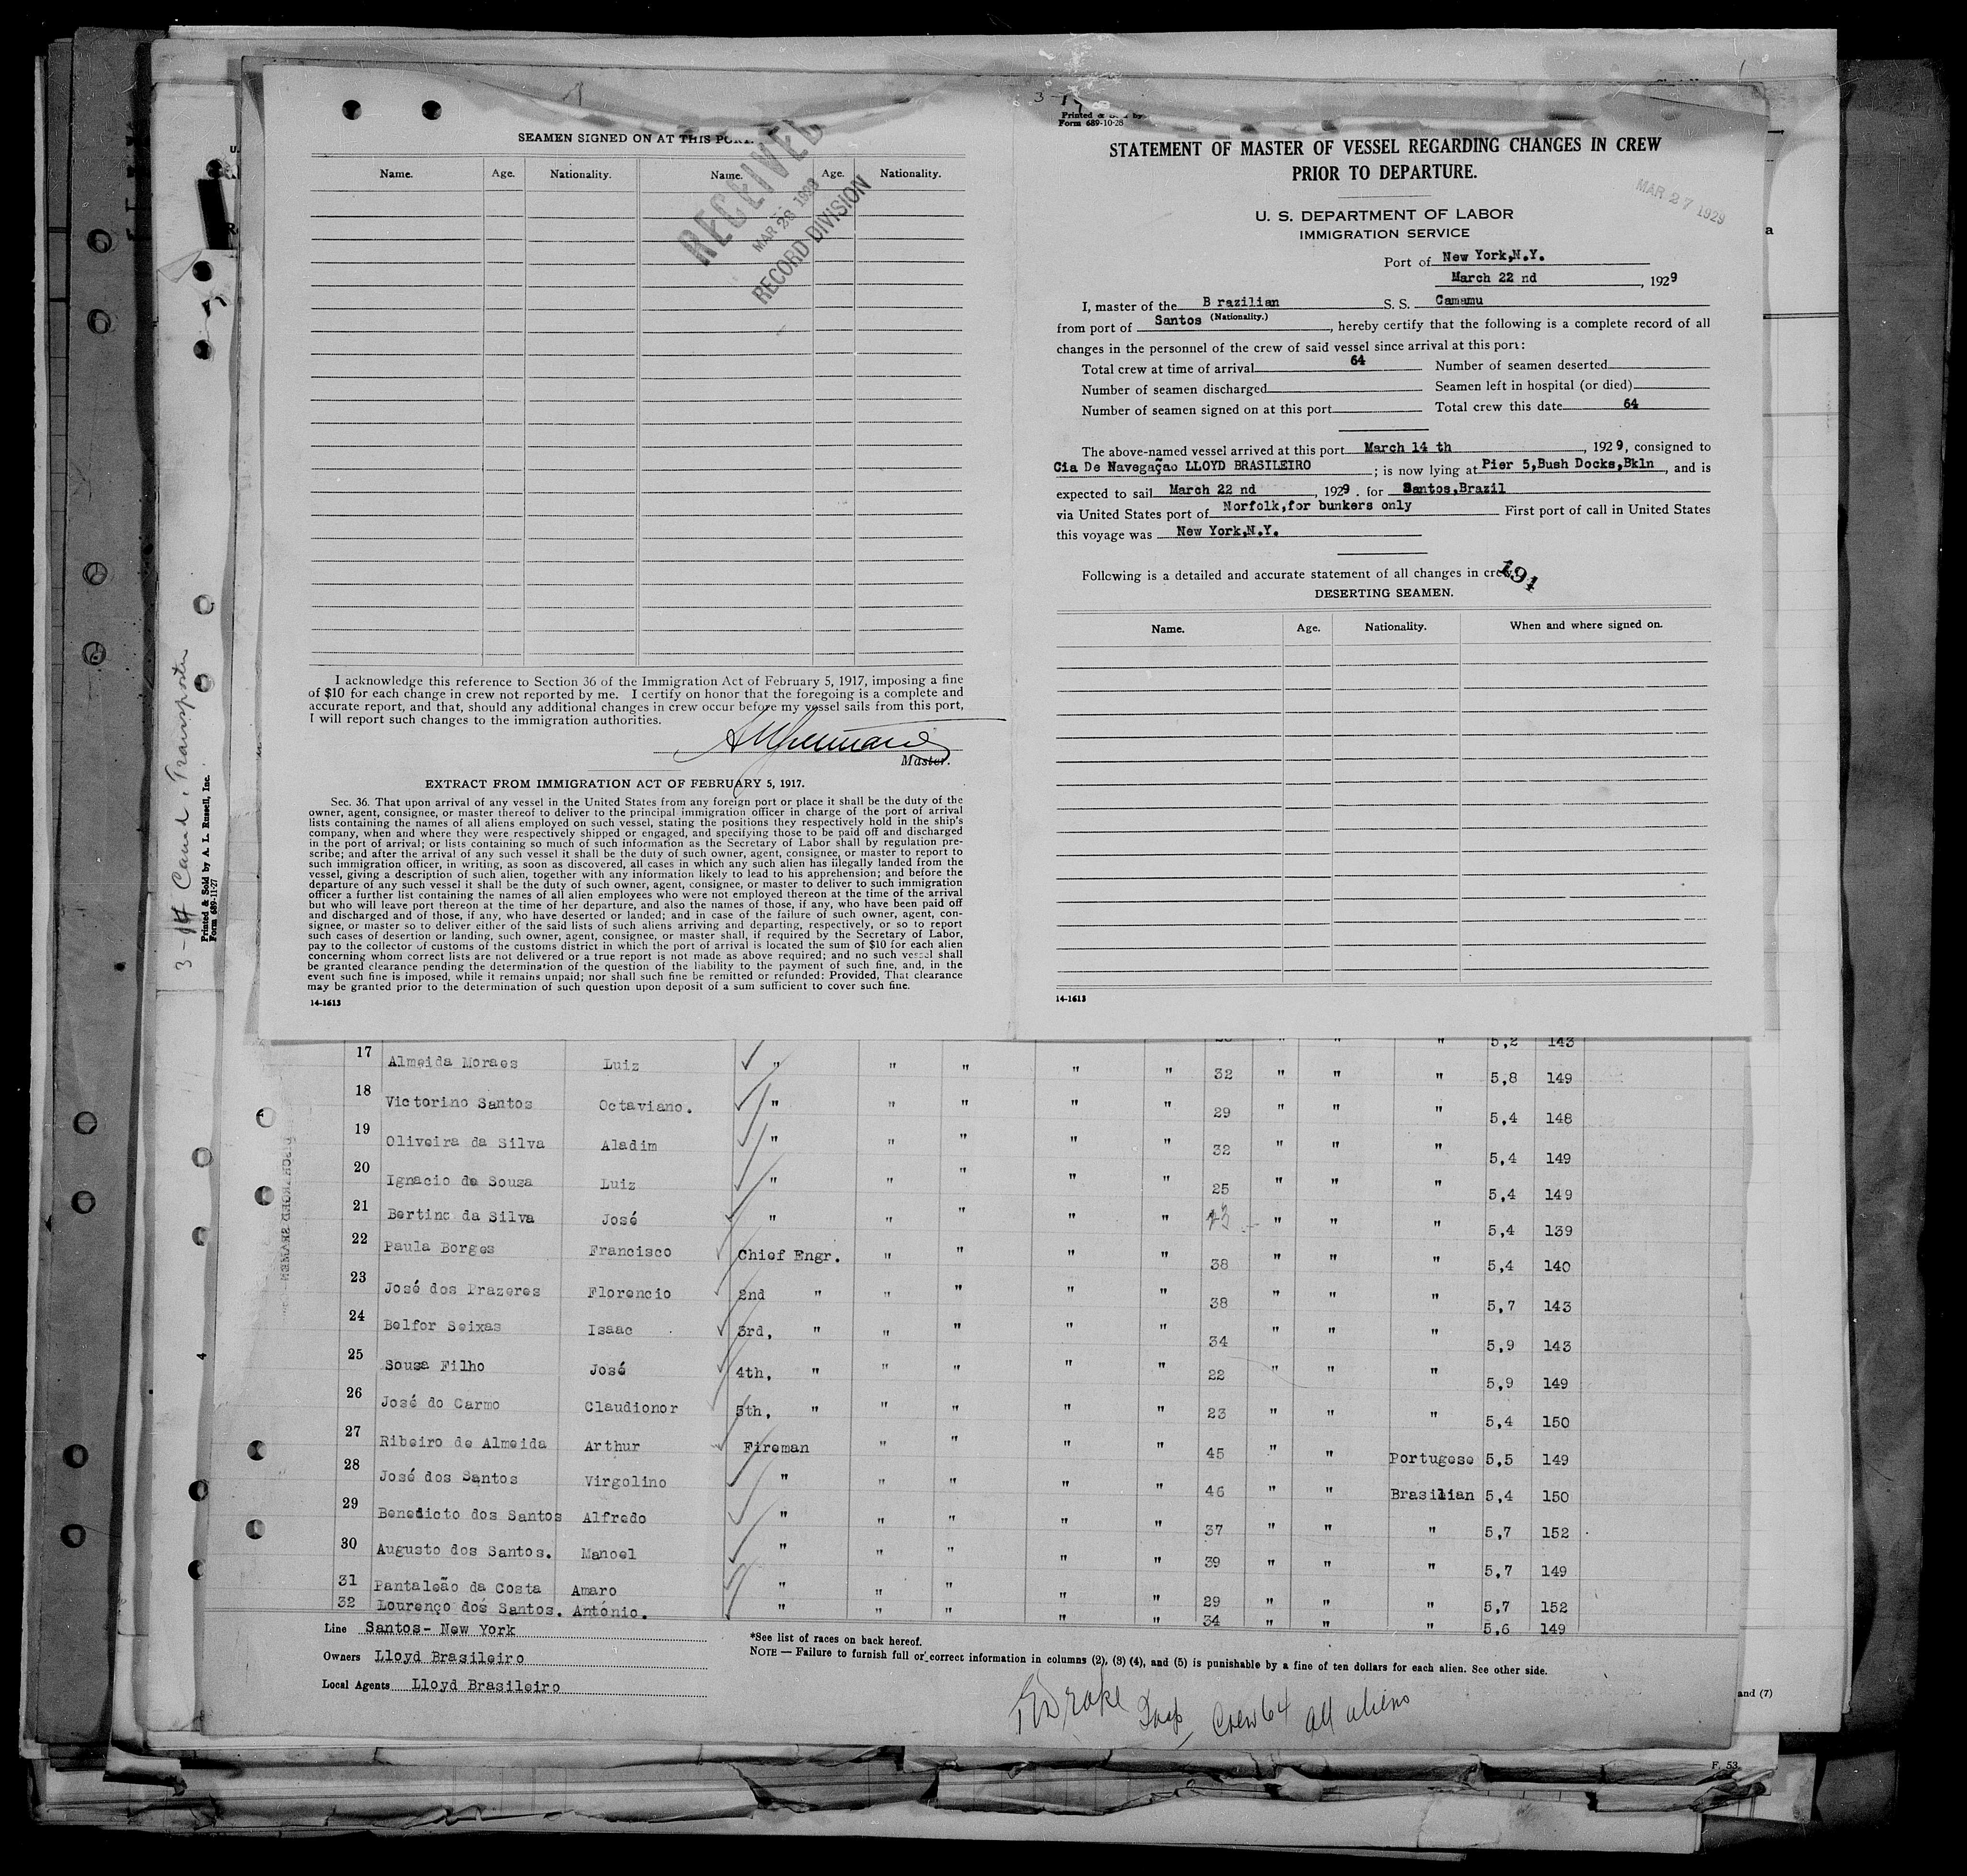 SEAMEN SIGNED ON AT THIS
Name. Age. Nationality. Name. Age. Nationality.
RECEIVED
MAR 28 1929
RECORD DIVISION
I acknowledge this reference to Section 36 of the Immigration Act of February 5, 1917, imposing a fine
of $10 for each change in crew not reported by me. I certify on honor that the foregoing is a complete and
accurate report, and that, should any additional changes in crew occur before my vessel sails from this port,
I will report such changes to the immigration authorities.
Master.
EXTRACT FROM IMMIGRATION ACT OF FEBRUARY 5, 1917.
Sec. 36. That upon arrival of any vessel in the United States from any foreign port or place it shall be the duty of the
owner, agent, consignee, or master thereof to deliver to the principal immigration officer in charge of the port of arrival
lists containing the names of all aliens employed on such vessel, stating the positions they respectively hold in the ship's
company, when and where they were respectively shipped or engaged, and specifying those to be paid off and discharged
in the port of arrival; or lists containing so much of such information as the Secretary of Labor shall by regulation pre-
scribe; and after the arrival of any such vessel it shall be the duty of such owner, agent, consignee, or master to report to
such immigration officer, in writing, as soon as discovered, all cases in which any such alien has illegally landed from the
vessel, giving a description of such alien, together with any information likely to lead to his apprehension; and before the
departure of any such vessel it shall be the duty of such owner, agent, consignee, or master to deliver to such immigration
officer a further list containing the names of all alien employees who were not employed thereon at the time of the arrival
but who will leave port thereon at the time of her departure, and also the names of those, if any, who have been paid off
and discharged and of those, if any, who have deserted or landed; and in case of the failure of such owner, agent, con-
signee, or master so to deliver either of the said lists of such aliens arriving and departing, respectively, or so to report
such cases of desertion or landing, such owner, agent, consignee, or master shall, if required by the Secretary of Labor,
pay to the collector of customs of the customs district in which the port of arrival is located the sum of $10 for each alien
concerning whom correct lists are not delivered or a true report is not made as above required; and no such vessel shall
be granted clearance pending the determination of the question of the liability to the payment of such fine, and, in the
event such fine is imposed, while it remains unpaid; nor shall such fine be remitted or refunded: Provided, That clearance
may be granted prior to the determination of such question upon deposit of a sum sufficient to cover such fine.
14-1613
Form 689-10-28
STATEMENT OF MASTER OF VESSEL REGARDING CHANGES IN CREW
PRIOR TO DEPARTURE.
MAR 27 1929
U. S. DEPARTMENT OF LABOR
IMMIGRATION SERVICE
Port of New York,N.Y.
March 22 nd, 1929
I, master of the B razilian S. S. Camamu
(Nationality.)
from port of Santos, hereby certify that the following is a complete record of all
changes in the personnel of the crew of said vessel since arrival at this port:
Total crew at time of arrival 64 Number of seamen deserted
Number of seamen discharged Seamen left in hospital (or died)
Number of seamen signed on at this port Total crew this date 64
The above-named vessel arrived at this port March 14 th, 1929, consigned to
Cia De Navegação LLOYD BRASILEIRO; is now lying at Pier 5,Bush Docks,Bkln, and is
expected to sail March 22 nd, 1929. for Santos,Brazil
via United States port of Norfolk,for bunkers only First port of call in United States
this voyage was New York,N.Y.
Following is a detailed and accurate statement of all changes in crew.
191
DESERTING SEAMEN.
Name. Age. Nationality. When and where signed on.
14-1613
3-14 Canad. Transporter
Printed & Sold by A. L. Russell, Inc.
Form 689-11-27
DISCHARGED SEAMEN
" 5,2 143
17 Almeida Moraes Luiz " " " " " 32 " " " 5,8 149
18 Victorino Santos Octaviano. " " " " " 29 " " " 5,4 148
19 Oliveira da Silva Aladim " " " " " 32 " " " 5,4 149
20 Ignacio de Sousa Luiz " " " " " 25 " " " 5,4 149
21 Bertino da Silva José " " " " " 43 " " " 5,4 139
22 Paula Borges Francisco Chief Engr. " " " " 38 " " " 5,4 140
23 José dos Prazeres Florencio 2nd " " " " " 38 " " " 5,7 143
24 Belfor Seixas Isaac 3rd, " " " " " 34 " " " 5,9 143
25 Sousa Filho José 4th, " " " " " 22 " " " 5,9 149
26 José do Carmo Claudionor 5th, " " " " " 23 " " " 5,4 150
27 Ribeiro de Almeida Arthur Fireman " " " " 45 " " Portugese 5,5 149
28 José dos Santos Virgolino " " " " " 46 " " Brasilian 5,4 150
29 Benedicto dos Santos Alfredo " " " " " 37 " " " 5,7 152
30 Augusto dos Santos. Manoel " " " " " 39 " " " 5,7 149
31 Pantaleão da Costa Amaro " " " " " 29 " " " 5,7 152
32 Lourenço dos Santos. António. " " " " " 34 " " " 5,6 149
Line Santos- New York
Owners Lloyd Brasileiro
Local Agents Lloyd Brasileiro
*See list of races on back hereof.
NOTE — Failure to furnish full or correct information in columns (2), (3) (4), and (5) is punishable by a fine of ten dollars for each alien. See other side.
Drake Insp. Crew 64 all aliens
and (7)
F. 53
4